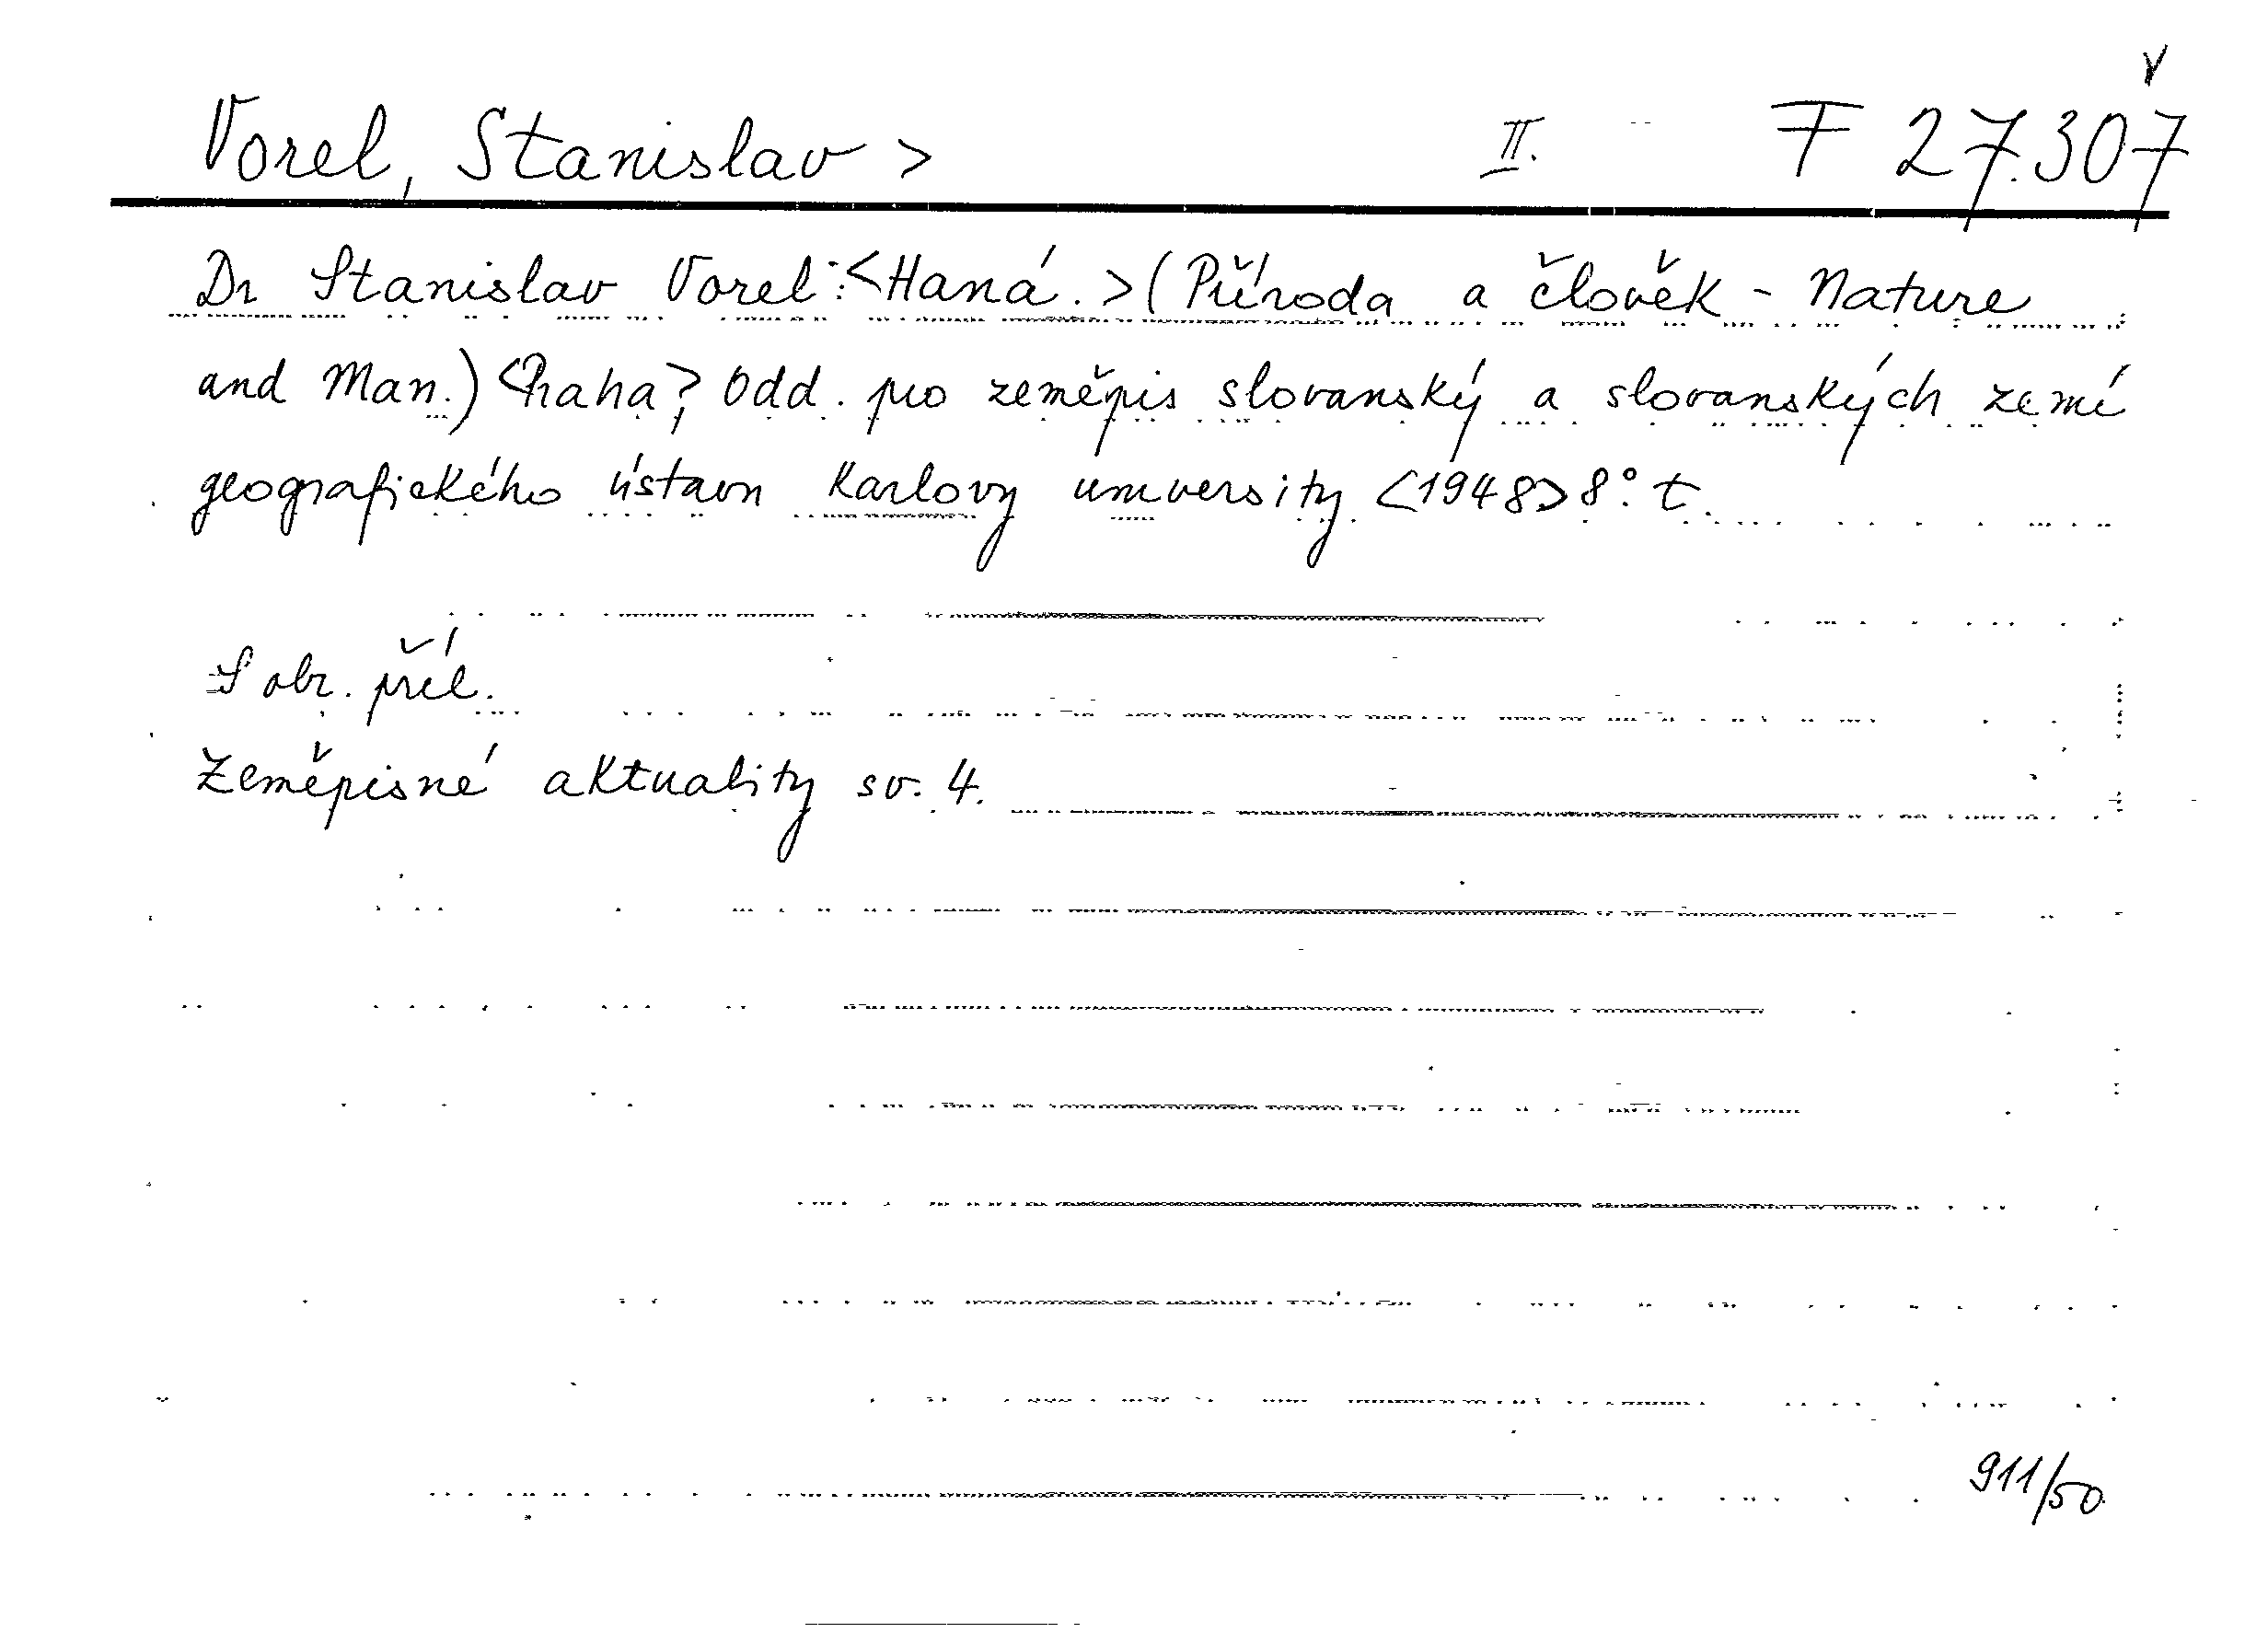 Vorel, Stanislav > II. F 27.307
Dr Stanislav Vorel: <Haná.> (Příroda a člověk - Nature
and Man.) <Praha>, Odd. pro zeměpis slovanský a slovanských zemí
geografického ústavu Karlovy university <1948> 8° t.
S obr. příl.
Zeměpisné aktuality sv. 4.
911/50